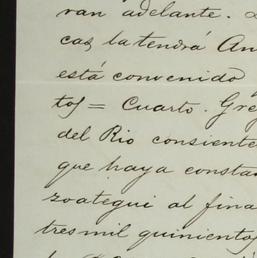 van adelante.
cas la tendrá An
está convenido
tos = Cuarto. Gre
del Rio consiente
que haya consta
zoategui al fina
tres mil quinientos